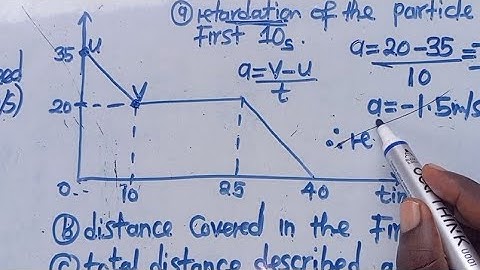 a) retardation of the particle
First 10s
35
u
a = v-u
t
a = 20-35 =
10
a = -1.5m/s
∴ re
20
v
0
10
25
40
tim
B) distance covered in the Fir
C) total distance described a
THINK